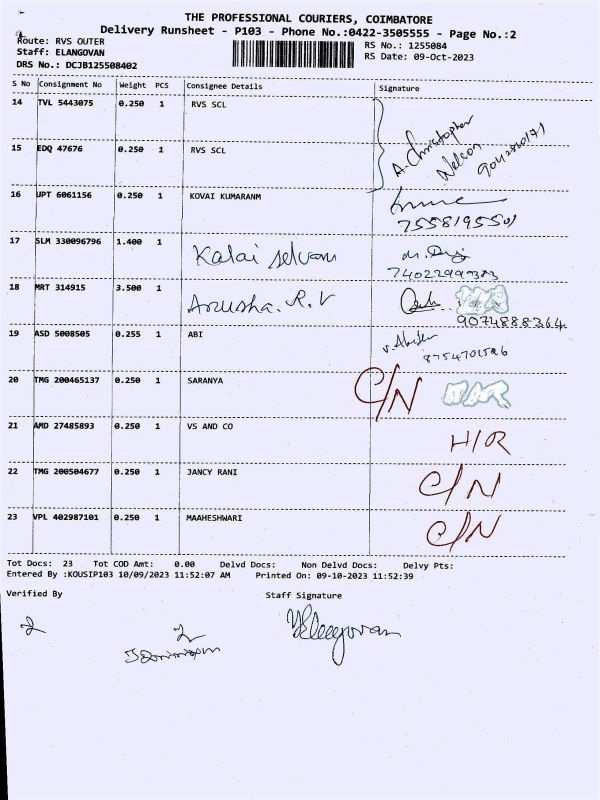 THE PROFESSIONAL COURIERS, COIMBATORE
Delivery Runsheet - P103 - Phone No.:0422-3505555 - Page No.:2
Route: RVS OUTER
RS No.: 1255084
Staff: ELANGOVAN
RS Date: 09-Oct-2023
DRS No.: DCJB125508402
S No Consignment No Weight PCS Consignee Details Signature
14 TVL 5443075 0.250 1 RVS SCL
A. Christopher
Nelson
15 EDQ 47676 0.250 1 RVS SCL
16 UPT 6061156 0.250 1 KOVAI KUMARANM
7558195501
17 SLM 330096796 1.400 1 Kalai selvam
7402299383
18 MRT 314915 3.500 1 Anusha. R.V
9074888364
19 ASD 5008505 0.255 1 ABI
8754701526
20 TMG 200465137 0.250 1 SARANYA C/N
21 AMD 27485893 0.250 1 VS AND CO H/R
22 TMG 200504677 0.250 1 JANCY RANI C/N
23 VPL 402987101 0.250 1 MAAHESHWARI C/N
Tot Docs: 23 Tot COD Amt: 0.00 Delvd Docs: Non Delvd Docs: Delvy Pts:
Entered By :KOUSIP103 10/09/2023 11:52:07 AM Printed On: 09-10-2023 11:52:39
Verified By Staff Signature
Elangovan